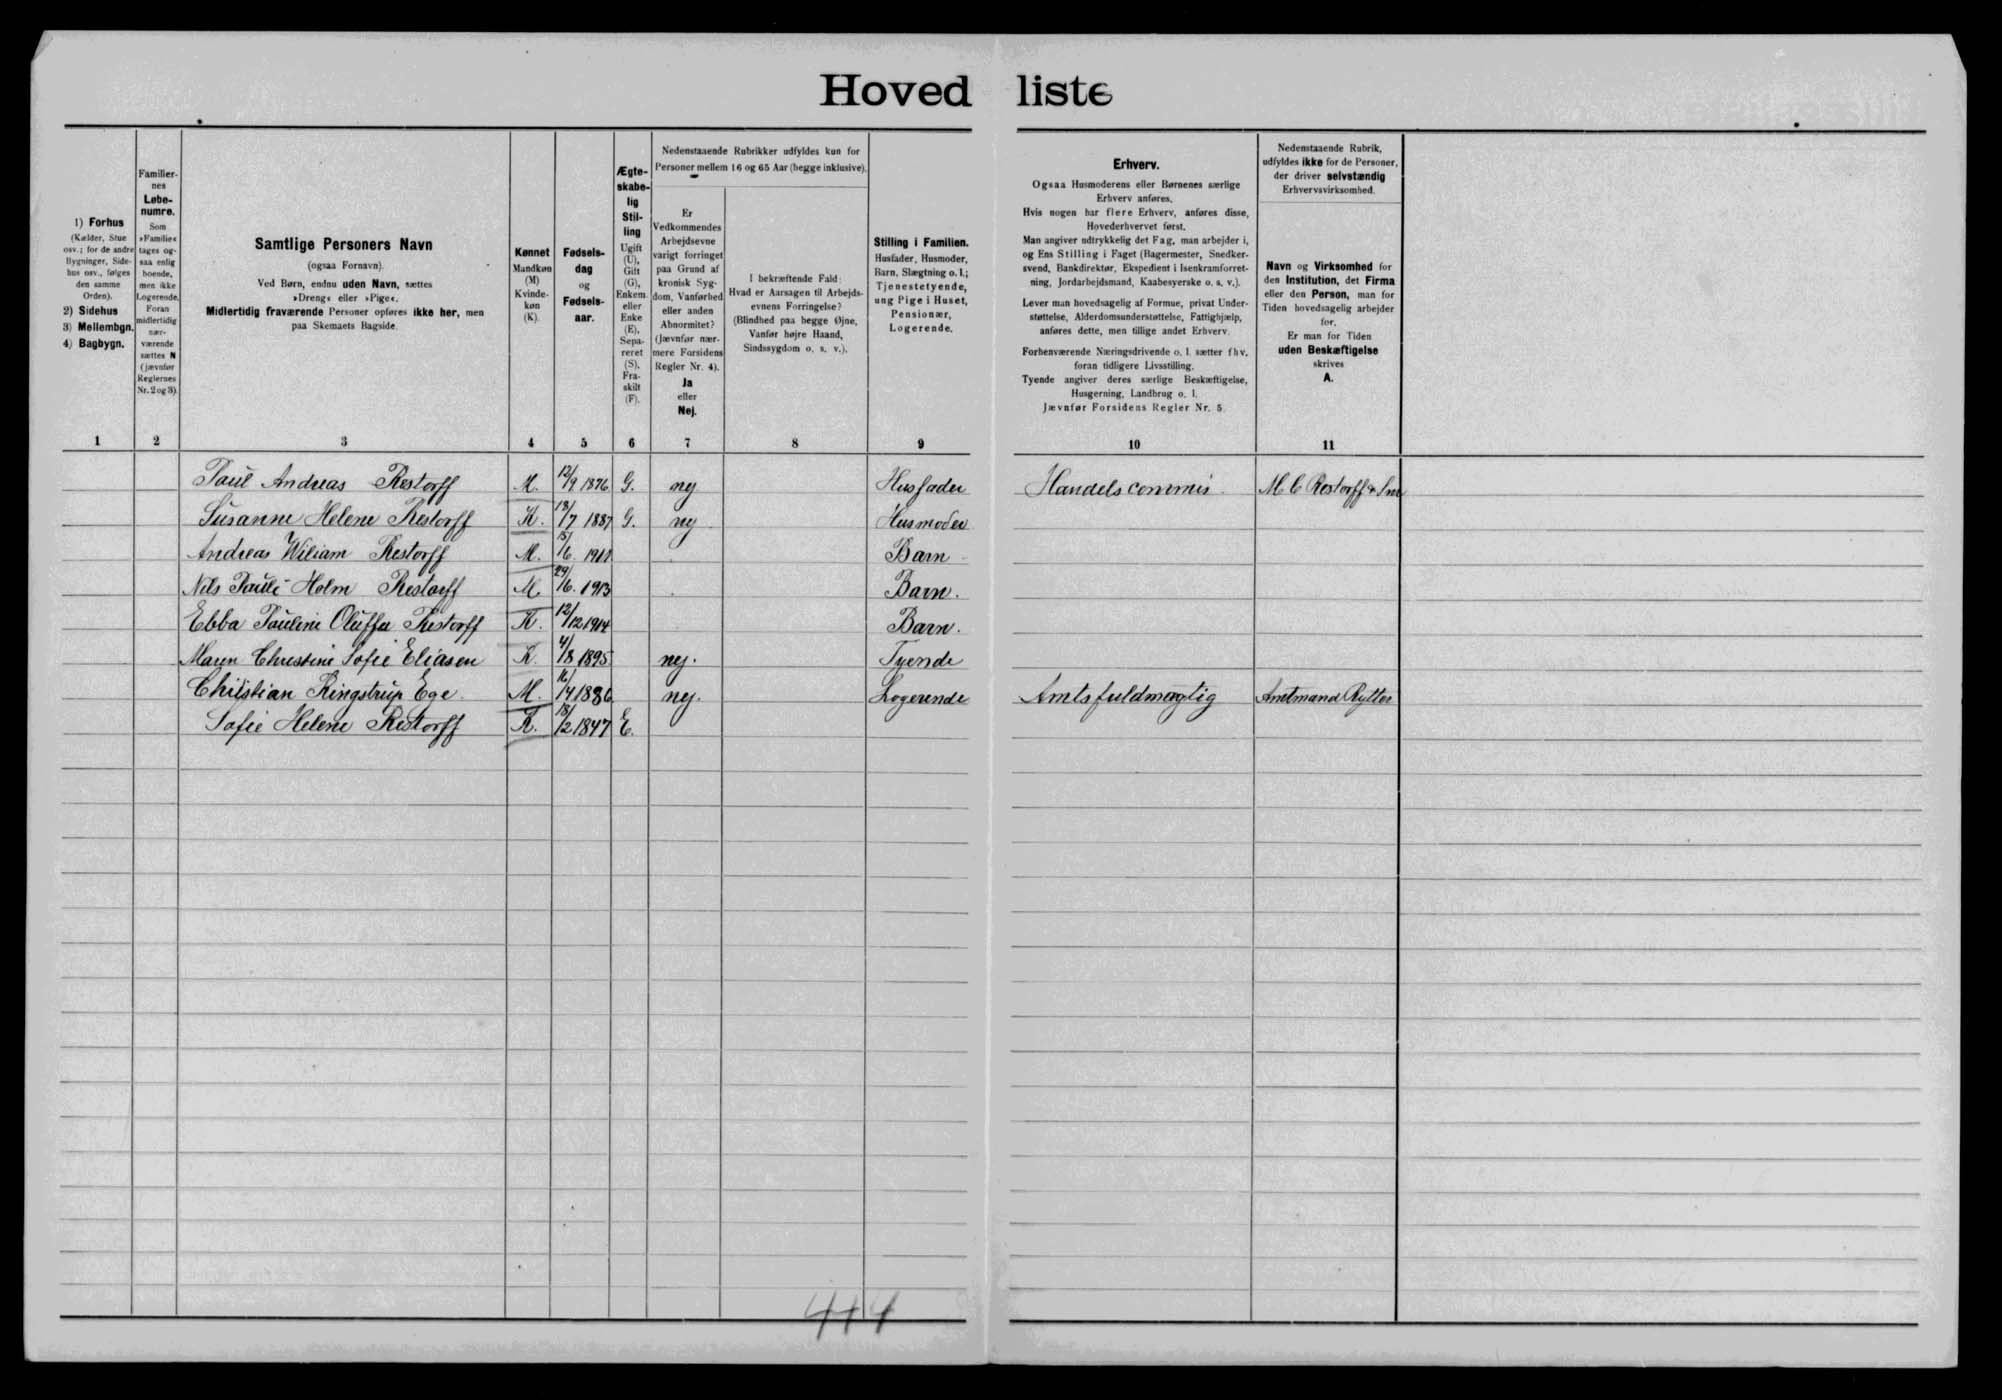 Hovedliste
1) Forhus
(Kælder, Stue
osv.; for de andre
Bygninger, Side-
hus osv., følges
den samme
Orden).
2) Sidehus
3) Mellembgn.
4) Bagbygn.
1
Familier-
nes
Løbe-
numre.
Som
»Familie«
tages og-
saa enlig
boende,
men ikke
Logerende.
Foran
midlertidig
nær-
værende
sættes N
(jævnfør
Reglernes
Nr. 2 og 3).
2
Samtlige Personers Navn
(ogsaa Fornavn).
Ved Børn, endnu uden Navn, sættes
»Dreng« eller »Pige«.
Midlertidig fraværende Personer opføres ikke her, men
paa Skemaets Bagside.
3
Kønnet
Mandkøn
(M)
Kvinde-
køn
(K).
4
Fødsels-
dag
og
Fødsels-
aar.
5
Ægte-
skabe-
lig
Stil-
ling
Ugift
(U),
Gift
(G),
Enkem.
eller
Enke
(E),
Sepa-
reret
(S),
Fra-
skilt
(F).
6
Nedenstaaende Rubrikker udfyldes kun for
Personer mellem 16 og 65 Aar (begge inklusive).
Er
Vedkommendes
Arbejdsevne
varigt forringet
paa Grund af
kronisk Syg-
dom, Vanførhed
eller anden
Abnormitet?
(Jævnfør nær-
mere Forsidens
Regler Nr. 4).
Ja
eller
Nej.
7
I bekræftende Fald:
Hvad er Aarsagen til Arbejds-
evnens Forringelse?
(Blindhed paa begge Øjne,
Vanfør højre Haand,
Sindssygdom o. s. v.).
8
Stilling i Familien.
Husfader, Husmoder,
Barn, Slægtning o. l.;
Tjenestetyende,
ung Pige i Huset,
Pensionær,
Logerende.
9
Erhverv.
Ogsaa Husmoderens eller Børnenes særlige
Erhverv anføres.
Hvis nogen har flere Erhverv, anføres disse,
Hovederhvervet først.
Man angiver udtrykkelig det Fag, man arbejder i,
og Ens Stilling i Faget (Bagermester, Snedker-
svend, Bankdirektør, Ekspedient i Isenkramforret-
ning, Jordarbejdsmand, Kaabesyerske o. s. v.).
Lever man hovedsagelig af Formue, privat Under-
støttelse, Alderdomsunderstøttelse, Fattighjælp,
anføres dette, men tillige andet Erhverv.
Forhenværende Næringsdrivende o. l. sætter fhv.
foran tidligere Livsstilling.
Tyende angiver deres særlige Beskæftigelse,
Husgerning, Landbrug o. l.
Jævnfør Forsidens Regler Nr. 5.
10
Nedenstaaende Rubrik,
udfyldes ikke for de Personer,
der driver selvstændig
Erhvervsvirksomhed.
Navn og Virksomhed for
den Institution, det Firma
eller den Person, man for
Tiden hovedsagelig arbejder
for.
Er man for Tiden
uden Beskæftigelse
skrives
A.
11
Paul Andreas Restorff M. 12/9 1876 G. nej Husfader Handelscommis. M C Restorff & Søn
Susanne Helene Restorff K. 18/7 1887 G. nej Husmoder
Andreas Wiliam Restorff M. 15/6. 1911 Barn
Nils Pauli Holm Restorff M. 29/6. 1913 Barn.
Ebba Pauline Oluffa Restorff K. 12/12 1914 Barn.
Maren Christine Sofie Eliasen K. 4/8 1895 nej. Tyende
Christian Ringstrup Ege. M. 16/4 1886 nej. Logerende Amtsfuldmægtig Amtmand Rytter
Sofie Helene Restorff K. 18/2 1847 E.
414